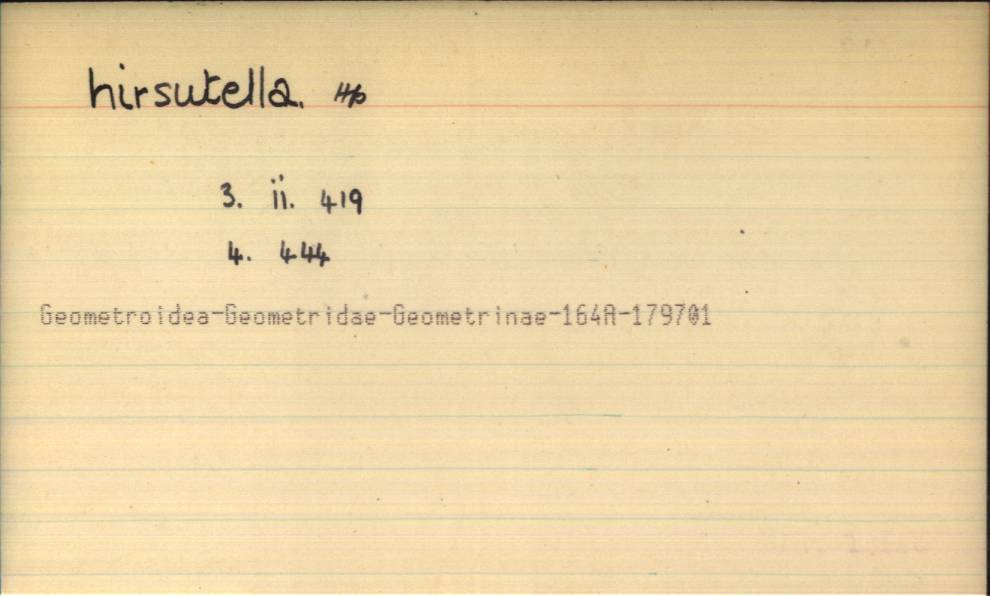 hirsutella. Hb
3. ii. 419
4. 444
Geometroidea-Geometridae-Geometrinae-164A-179701